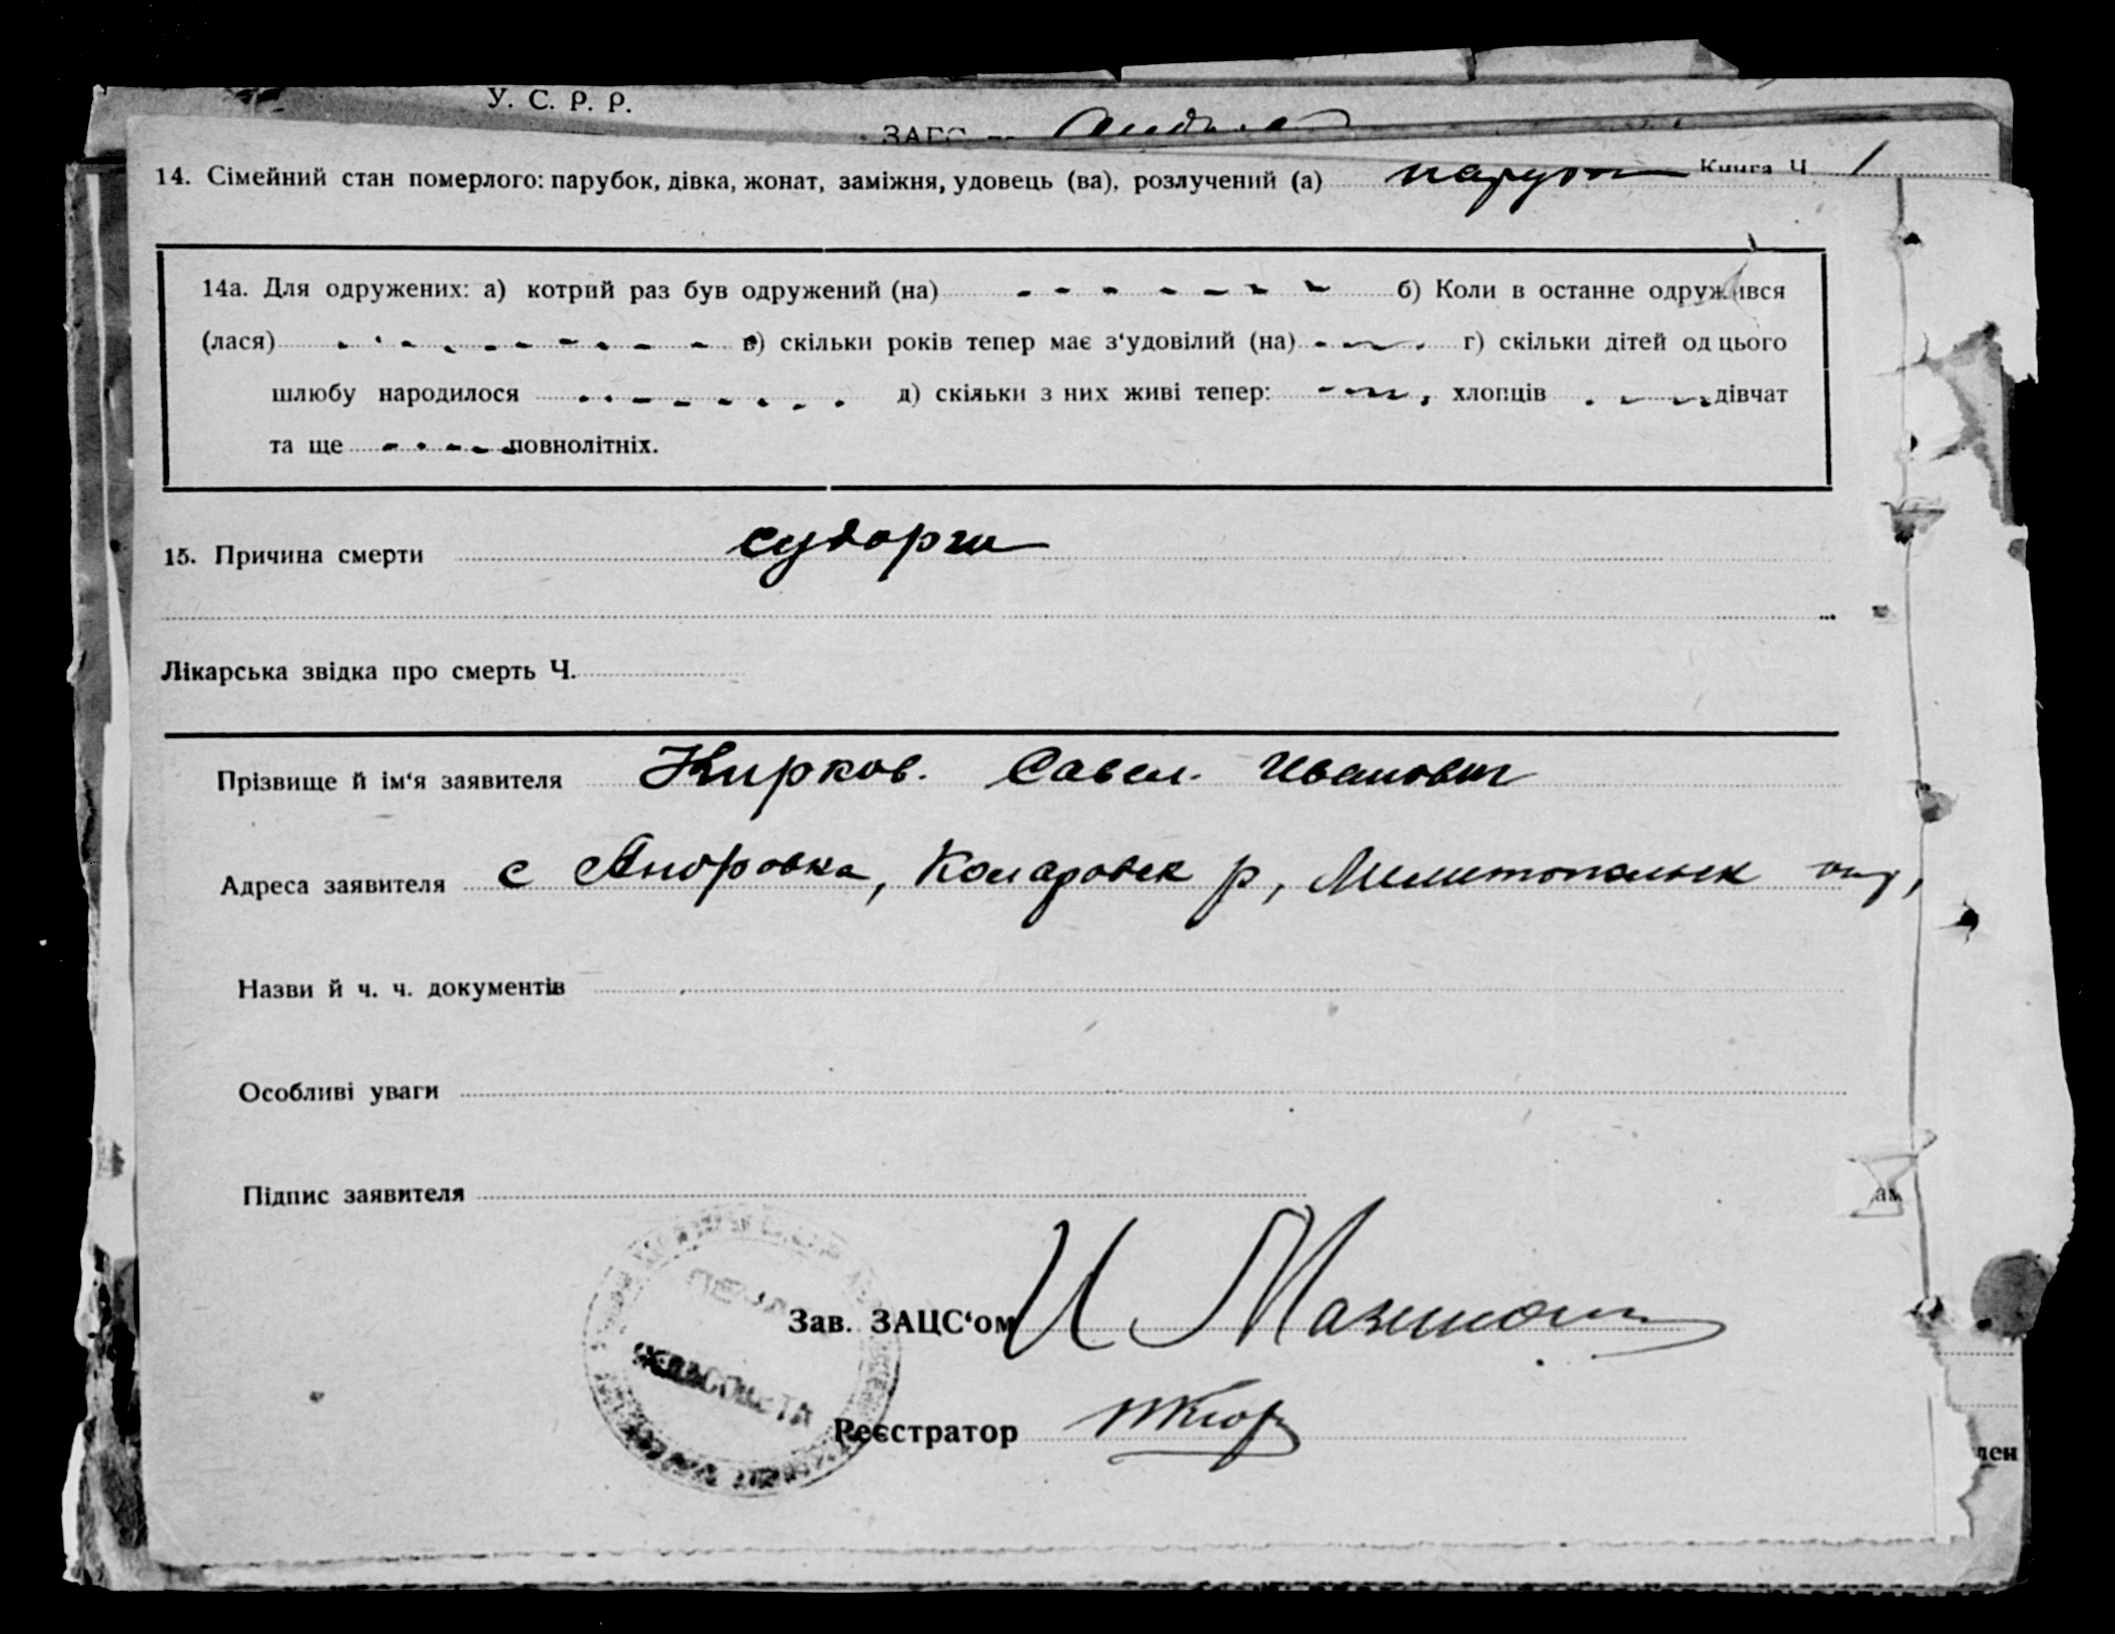 У. С. Р. Р.
ЗАГС
14. Сімейний стан померлого: парубок, дівка, жонат, заміжня, удовець (ва), розлучений (а) парубок Книга Ч. 1
14а. Для одружених: а) котрий раз був одружений (на) б) Коли в останне одружився
(лася) в) скільки років тепер має з‘удовілий (на) г) скільки дітей од цього
шлюбу народилося д) скільки з них живі тепер: , хлопців дівчат
та ще повнолітніх.
15. Причина смерти судорги
Лікарська звідка про смерть Ч.
Прізвище й ім‘я заявителя Кирков. Савел. Иванович
Адреса заявителя с Андровка, Комаровск р, Мелитопольск окр,
Назви й ч. ч. документів
Особливі уваги
Підпис заявителя
Зав. ЗАЦС‘ом И
Реєстратор